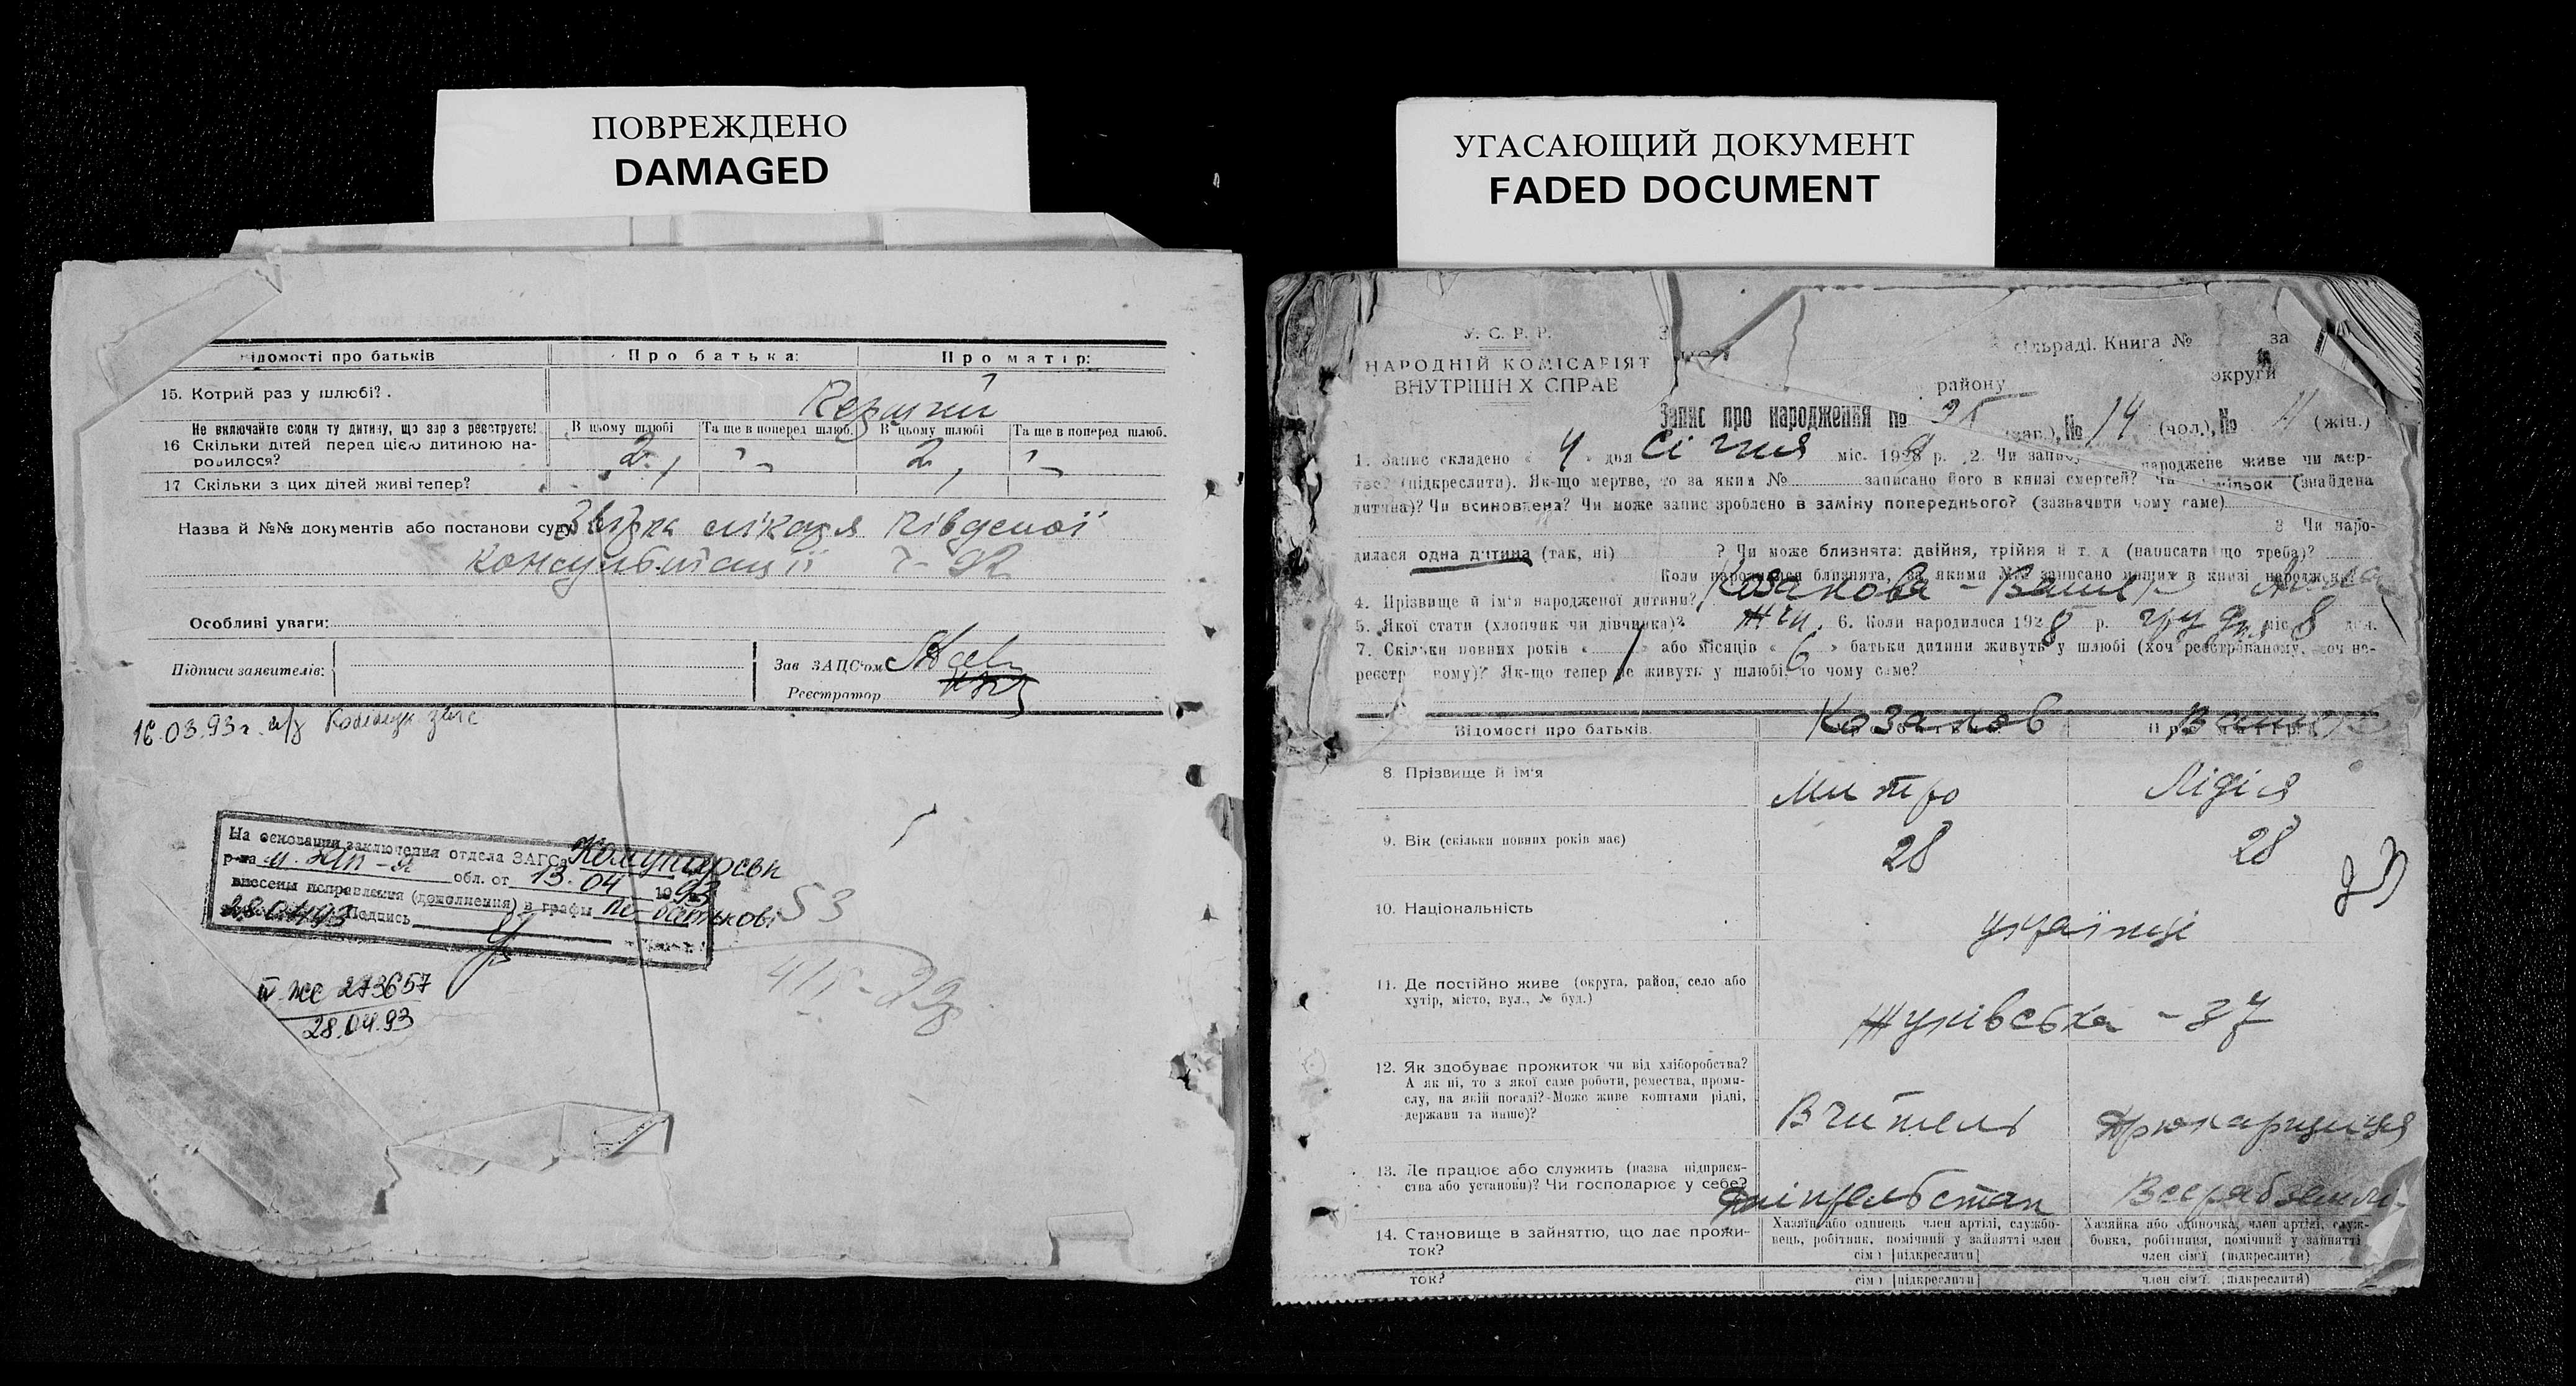 ПОВРЕЖДЕНО
DAMAGED
ідомості про батьків
Про батька:
Про матір:
15. Котрий раз у шлюбі?.
Не включайте сюди ту дитину, що зар з реєструєте!
В цьому шлюбі
Та ще в поперед шлюб.
В цьому шлюбі
Та ще в поперед шлюб.
16 Скільки дітей перед цією дитиною на-
родилося?
2
2
17 Скільки з цих дітей живі тепер?
Назва й №№ документів або постанови суду
лікаря
консультації ч-92
Особливі уваги:
Підписи заявителів:
Зав ЗАЦС'ом
Реєстратор
16.03.93г.
На основании заключения отдела ЗАГСа Комунарськ
р-на обл. от 13.04 1993
внесены исправления (дополнения) в графы по батькові
28.04.93 Подпись
53
ЖС 273657
28.04.93
УГАСАЮЩИЙ ДОКУМЕНТ
FADED DOCUMENT
У. С. Р. Р.
НАРОДНІЙ КОМІСАРІЯТ
ВНУТРІШН Х СПРАВ
сільраді. Книга № за
району округи
Запис про народження № (заг.), № 14 (чол.), № 11 (жін.)
1. Запис складено « 4 » дня січня міс. 1929 р. 2. Чи запису народжене живе чи мер-
тве? (підкреслити). Як-що мертве, то за яким № записано його в книзі смертей? Чи (знайдена
дитина)? Чи всиновлена? Чи може запис зроблено в заміну попереднього? (зазначити чому саме)
3 Чи наро-
дилася одна дитина (так, ні) ? Чи може близнята: двійня, трійня й т. д (написати що треба)?
Коли народилися близнята, за якими №№ записано инших в книзі народжень?
4. Прізвище й ім'я народженої дитини? Козакова -
5. Якої стати (хлопчик чи дівчинка)? жін. 6. Коли народилося 1928 р. грудня міс 8 дня.
7. Скільки повних років « 1 » або місяців « 6 » батьки дитини живуть у шлюбі (хоч реєстрованому, хоч не-
реєстр ному)? Як-що тепер не живуть у шлюбі, то чому саме?
Відомості про батьків.
Козаков
8. Прізвище й ім'я
Митро
Лідія
9. Вік (скільки повних років має)
28
28
10. Національність
українці
11. Де постійно живе (округа, район, село або
хутір, місто, вул., № буд.)
Жуківська - 37
12. Як здобуває прожиток чи від хліборобства?
А як ні, то з якої саме роботи, ремества, проми-
слу, на якій посаді? Може живе коштами рідні,
держави та инше)?
Вчитель
Друкарщиця
13. Де працює або служить (назва підприєм-
ства або установи)? Чи господарює у себе?
Дніпрельстан
Всерабземліс
14. Становище в зайняттю, що дає прожи-
ток?
Хазяїн або одинець член артілі, службо-
вець, робітник, помічний у зайнятті член
сім ї [підкреслити]
Хазяйка або одиночка, член артілі, служ-
бовка, робітниця, помічний у зайнятті
член сім'ї (підкреслити)
ток?
сім ї [підкреслити]
член сім'ї. (підкреслити)